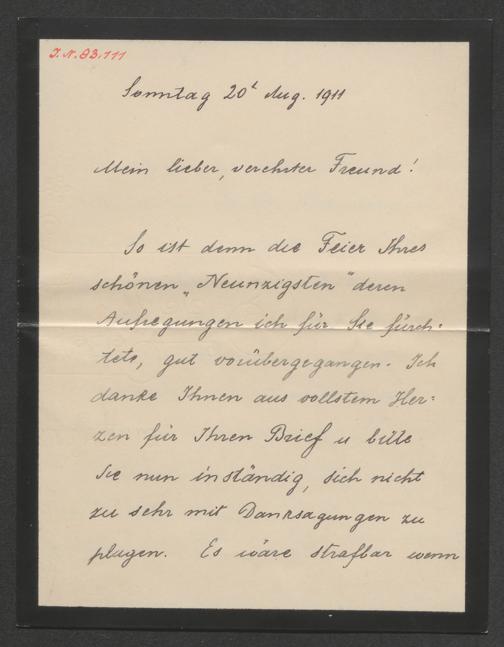 J.N.83.111
Sonntag 20t Aug. 1911
Mein lieber, verehrter Freund!
So ist denn die Feier Ihres
schönen „Neunzigsten" deren
Aufregungen ich für Sie fürch=
tete, gut vorübergegangen. Ich
danke Ihnen aus vollstem Her=
zen für Ihren Brief u bitte
Sie nun inständig, sich nicht
zu sehr mit Danksagungen zu
plagen. Es wäre strafbar wenn